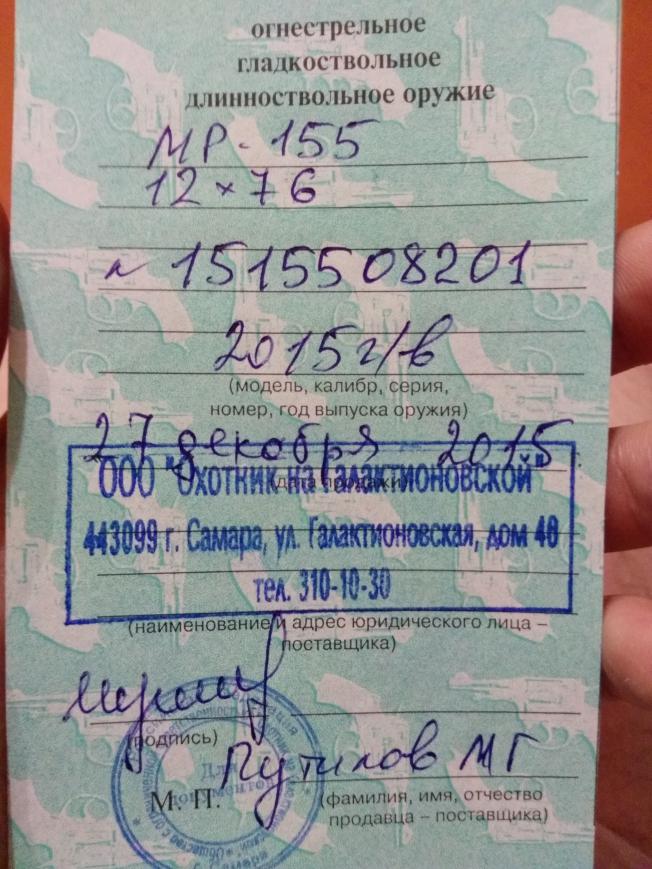 огнестрельное
гладкоствольное
длинноствольное оружие
МР-155
12×76
N 1515508201
2015 г/в
(модель, калибр, серия,
номер, год выпуска оружия)
27 декабря 2015
(дата продажи)
ООО "Охотник на Галактионовской"
443099 г. Самара, ул. Галактионовская, дом 40
тел. 310-10-30
(наименование и адрес юридического лица –
поставщика)
(подпись)
Для
документов
М. П.
Путилов МГ
(фамилия, имя, отчество
продавца – поставщика)